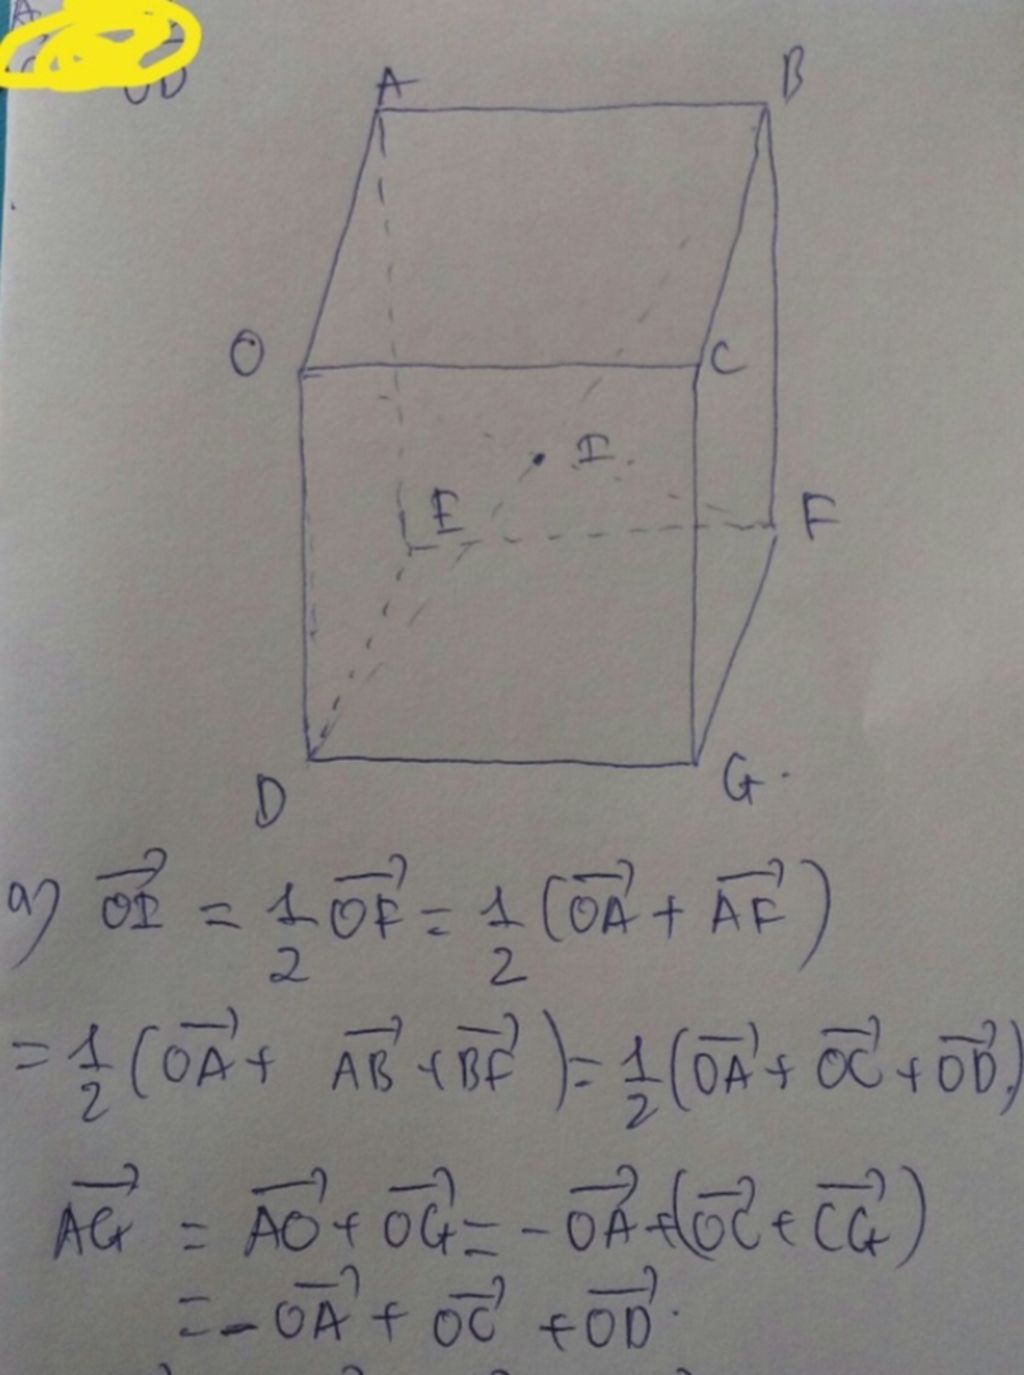 A B
O C
I
E F
D G.
a) \overrightarrow{OI} = \frac{1}{2} \overrightarrow{OF} = \frac{1}{2} (\overrightarrow{OA} + \overrightarrow{AF})
= \frac{1}{2} (\overrightarrow{OA} + \overrightarrow{AB} + \overrightarrow{BF}) = \frac{1}{2} (\overrightarrow{OA} + \overrightarrow{OC} + \overrightarrow{OD}).
\overrightarrow{AG} = \overrightarrow{AO} + \overrightarrow{OG} = -\overrightarrow{OA} + (\overrightarrow{OC} + \overrightarrow{CG})
= -\overrightarrow{OA} + \overrightarrow{OC} + \overrightarrow{OD}.